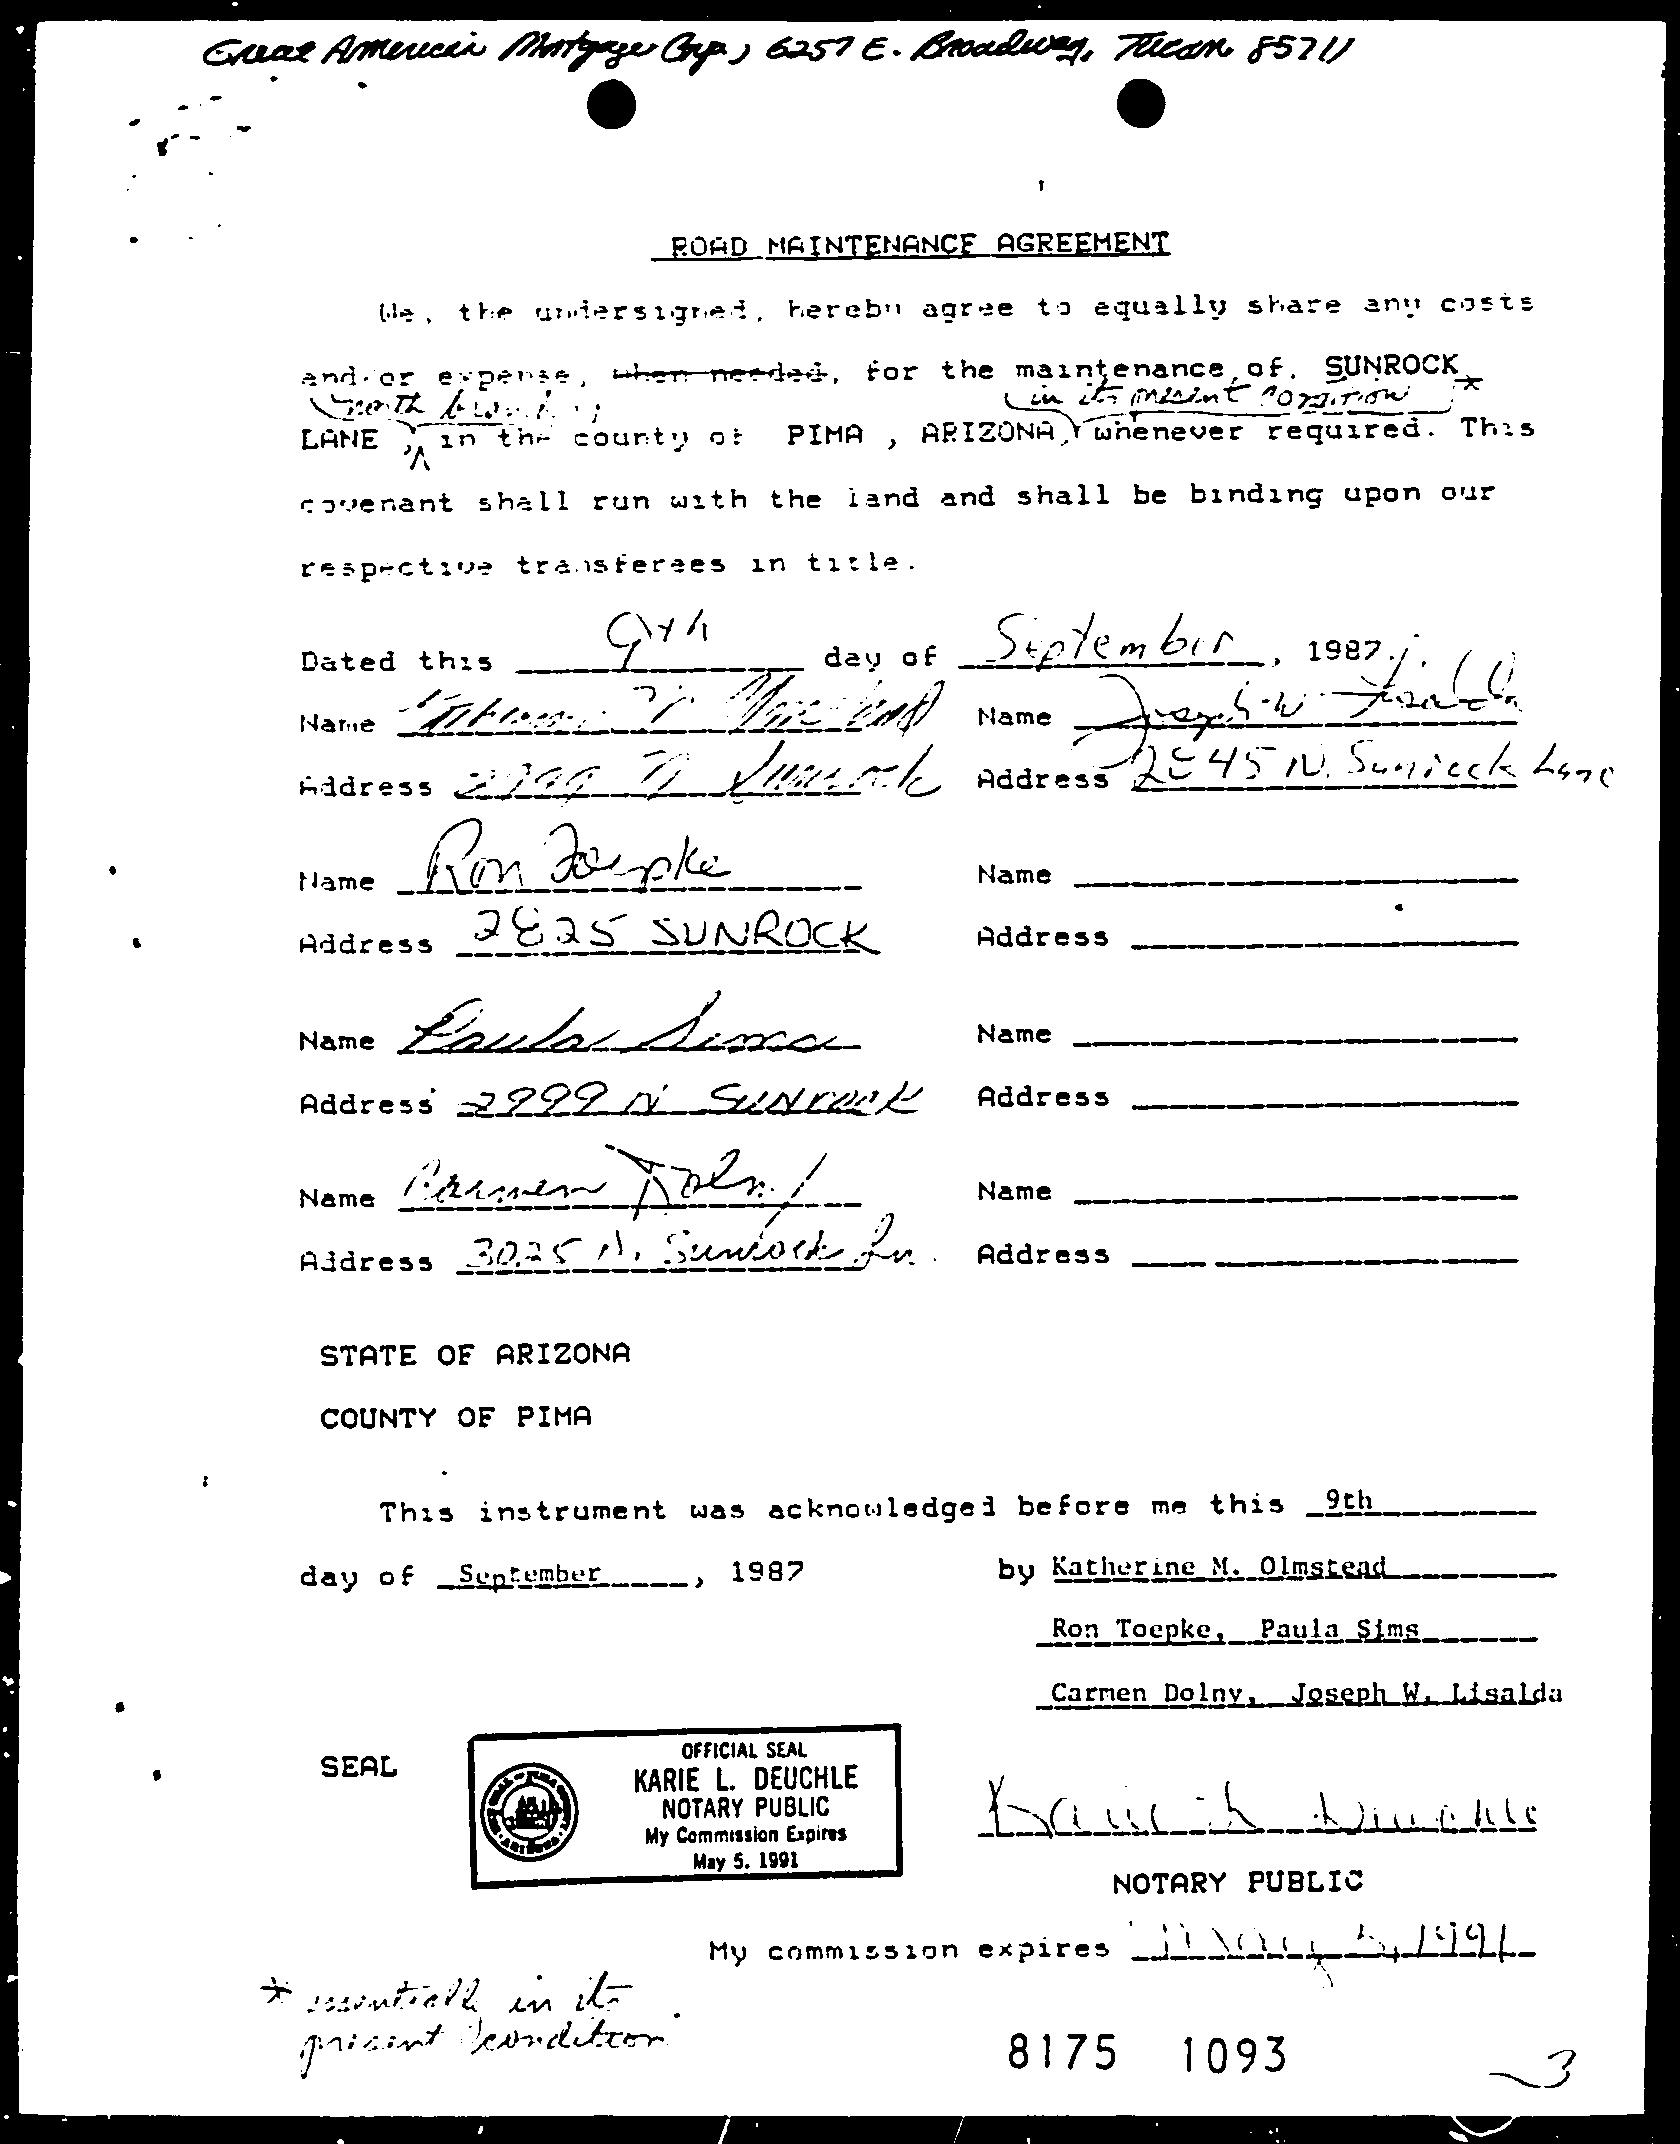 Great American Mortgage Corp, 6257 E. Broadway, Tucson 85711
ROAD MAINTENANCE AGREEMENT
We, the undersigned, hereby agree to equally share any costs
and/or expense, when needed, for the maintenance of, SUNROCK
north branch in its present condition *
LANE, in the county of PIMA , ARIZONA, whenever required. This
covenant shall run with the land and shall be binding upon our
respective transferees in title.
Dated this 9th day of September, 1987.
Name Name Joseph W.
Address N Sunrock Address 2845 N. Sunrock Lane
Name Ron Toepke Name
Address 2825 SUNROCK Address
Name Paula Sims Name
Address 2999 N SUNROCK Address
Name Carmen Dolny Name
Address 3025 N. Sunrock Ln. Address
STATE OF ARIZONA
COUNTY OF PIMA
This instrument was acknowledged before me this 9th
day of September, 1987 by Katherine M. Olmstead
Ron Toepke, Paula Sims
Carmen Dolny, Joseph W. Lisalda
SEAL
OFFICIAL SEAL
KARIE L. DEUCHLE
NOTARY PUBLIC
My Commission Expires
May 5, 1991
Karie L. Deuchle
NOTARY PUBLIC
My commission expires May 5, 1991
* essentially in its
present condition
8175 1093
3